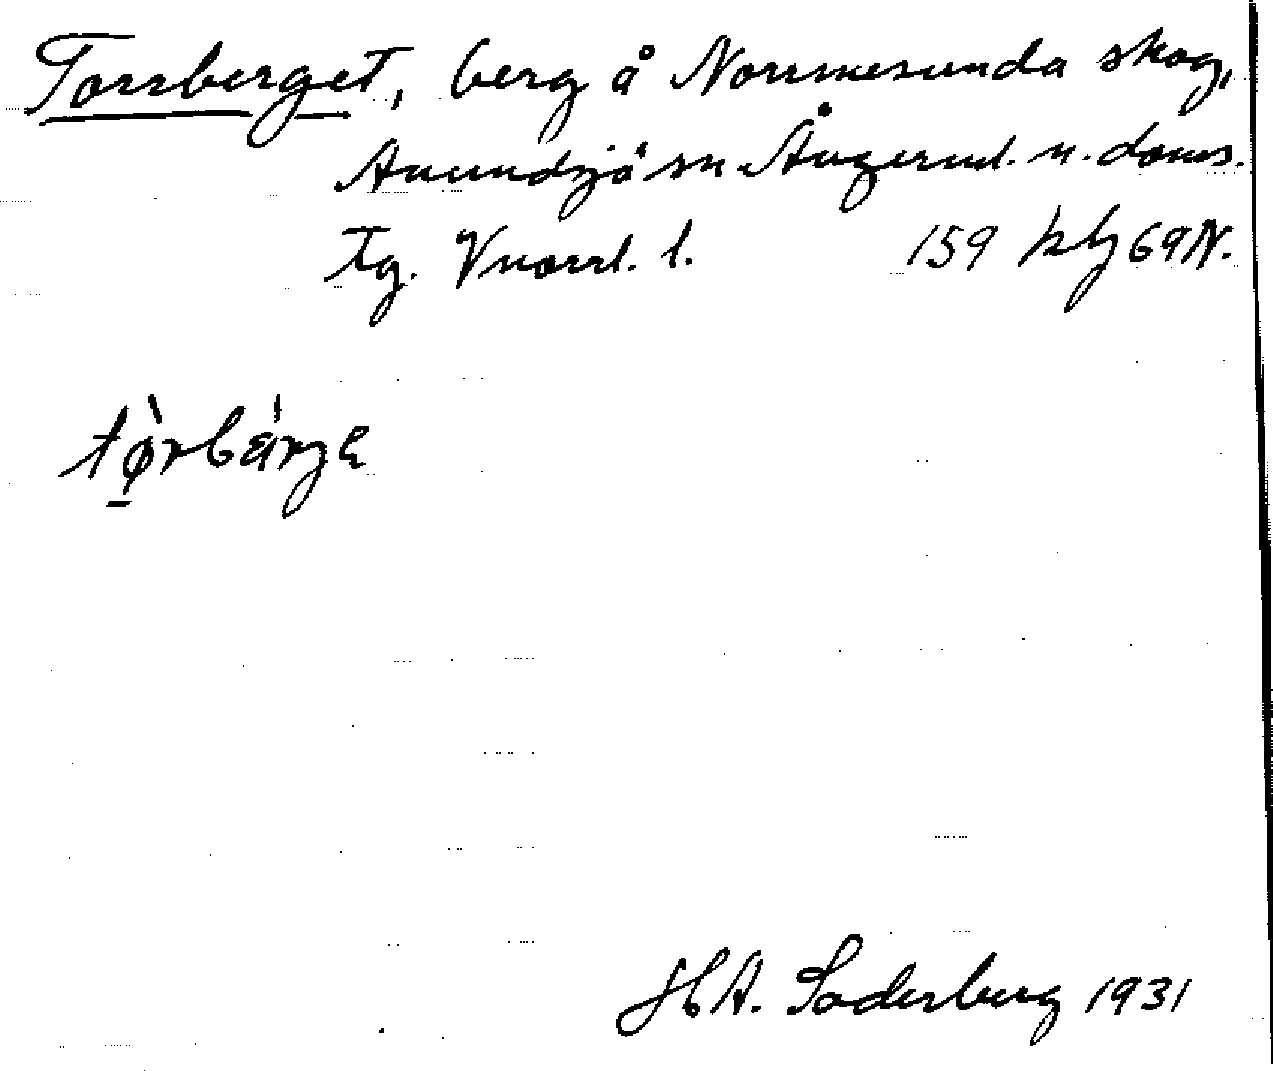 Torrberget, berg å Norrmesunda skog,
Anundsjö sn Ångerml. n. doms.
tg. Vnorrl. l. 159 kbj 69 N.
tørbärjɛ
H A. Söderberg 1931